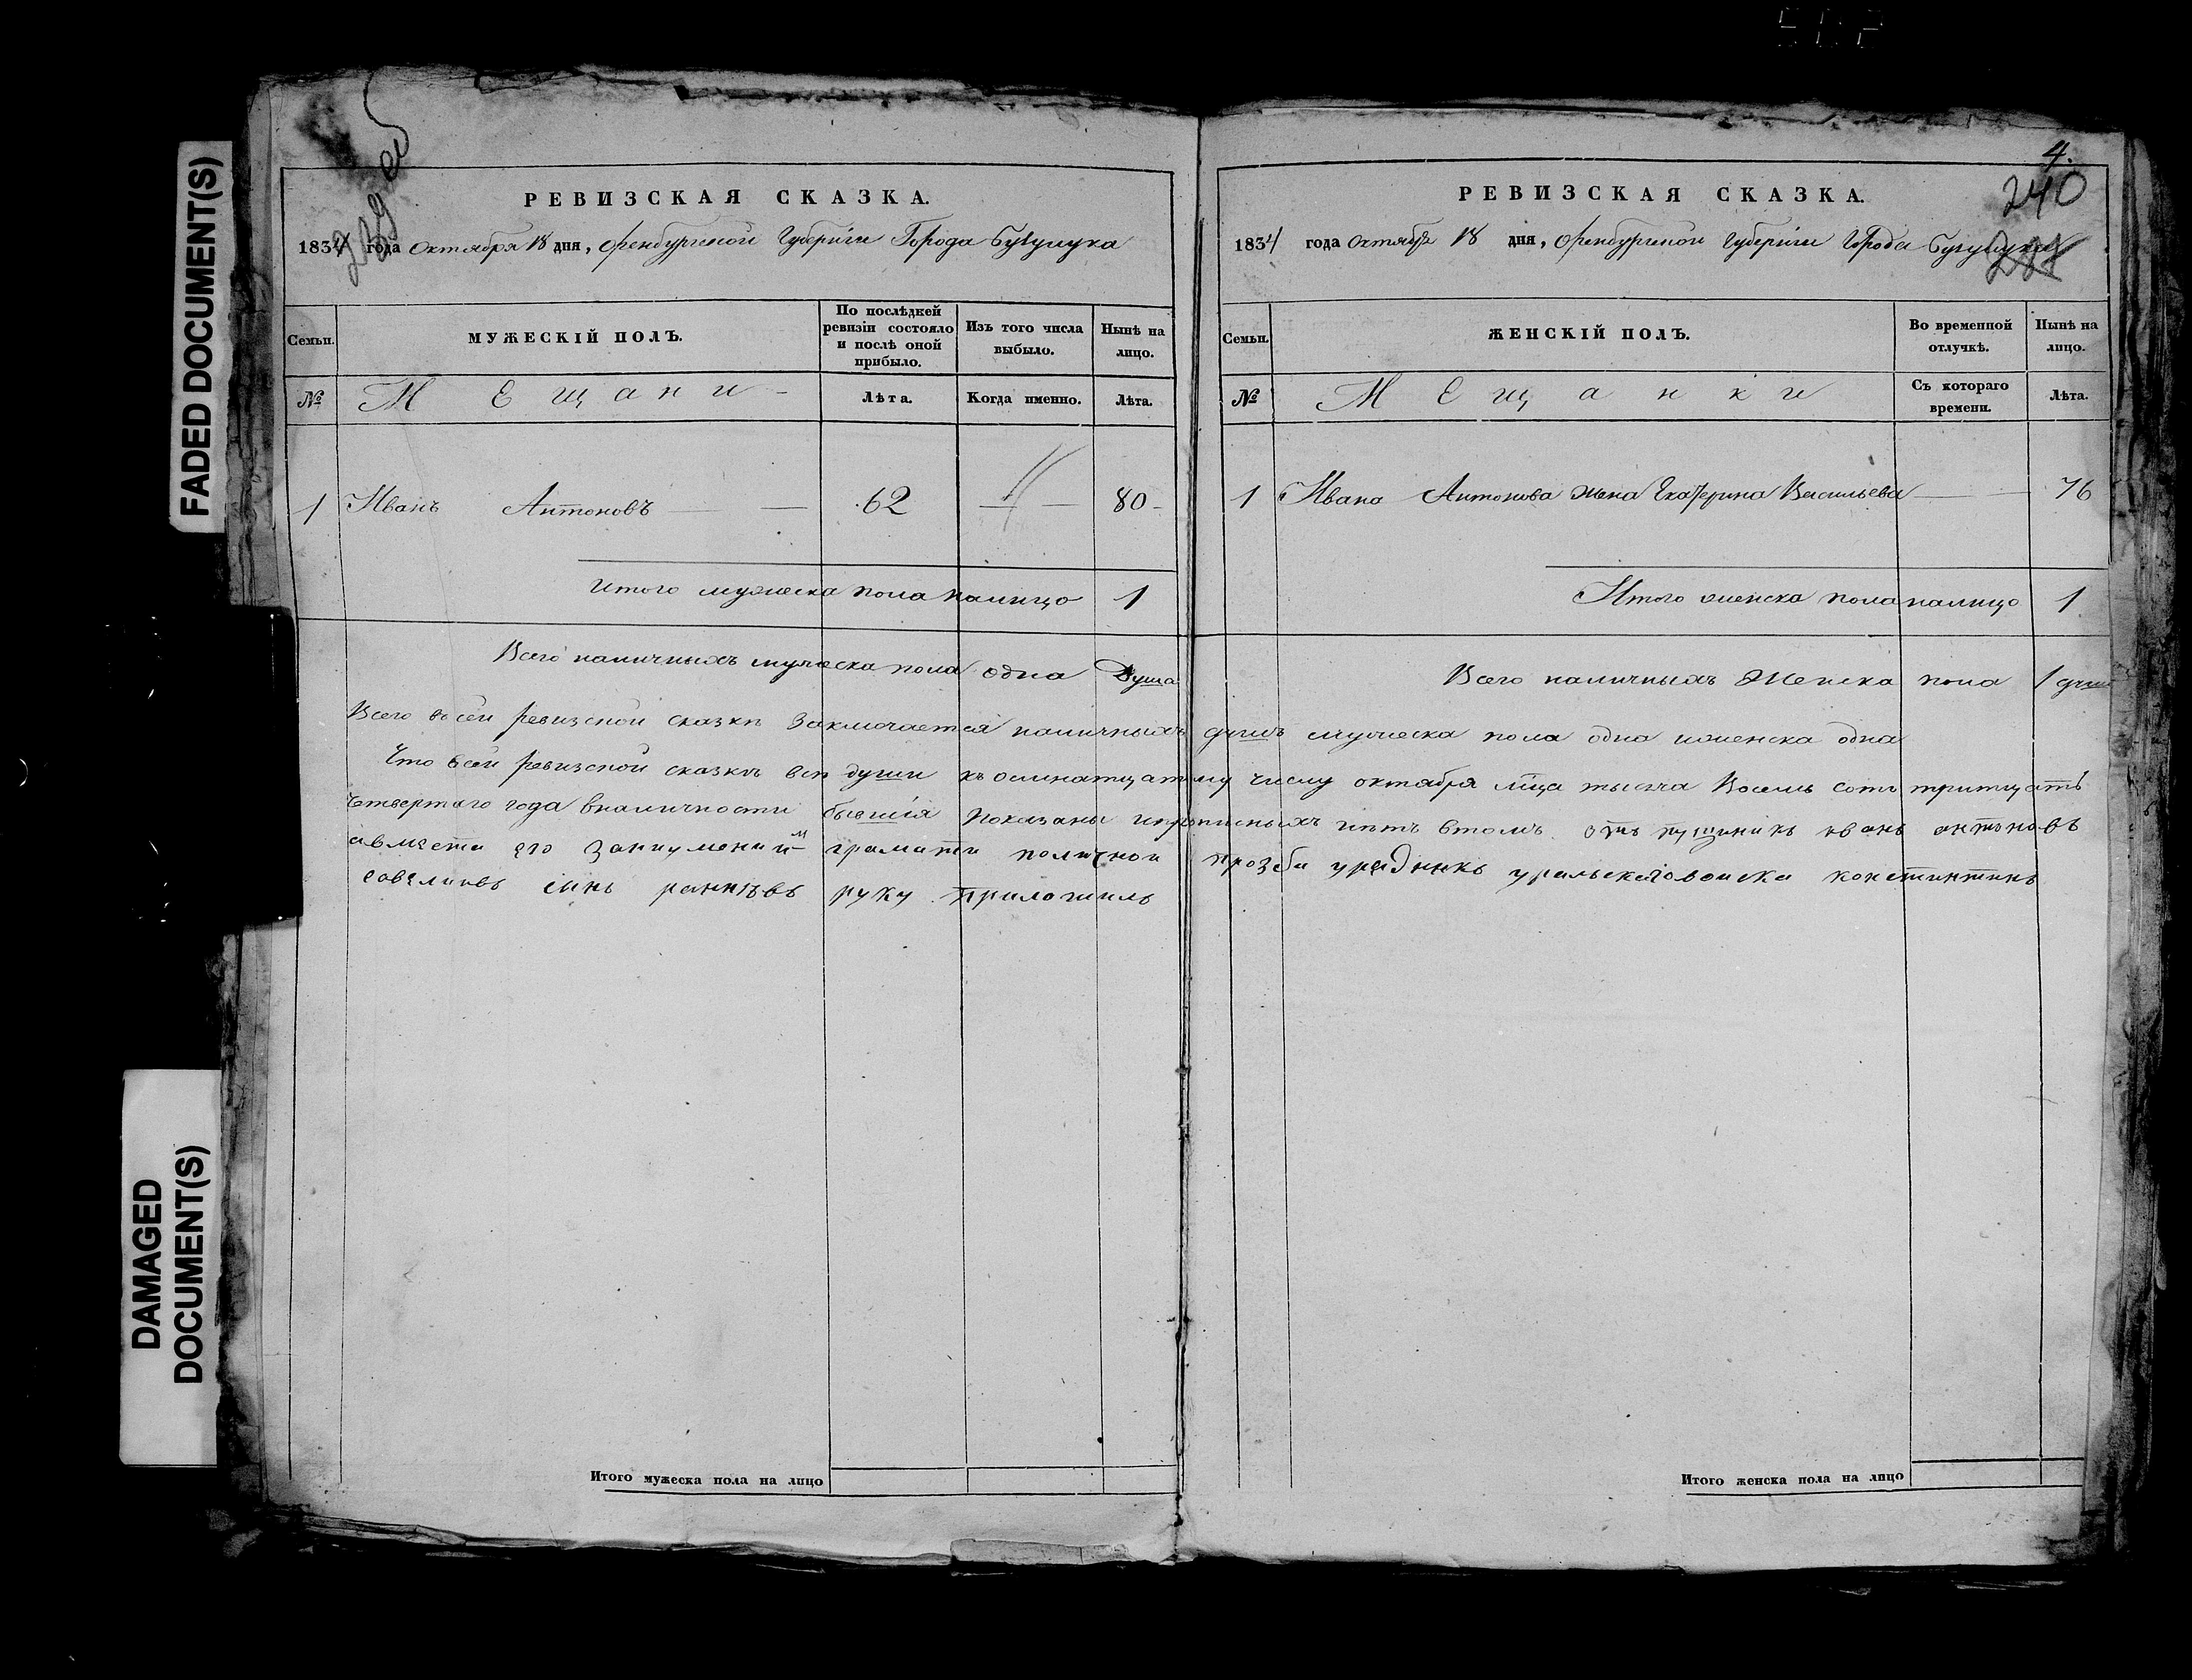 FADED DOCUMENT(S)
DAMAGED
DOCUMENT(S)
239 об
РЕВИЗСКАЯ СКАЗКА.
1834 года Октября 18 дня, Оренбургской Губернiи Города Бугульмы
Семьи.
МУЖЕСКIЙ ПОЛЪ.
По послѣдней
ревизiи состояло
и послѣ оной
прибыло.
Изъ того числа
выбыло.
Нынѣ на
лицо.
№
Мещани
Лѣта.
Когда именно.
Лѣта.
1 Иванъ Антоновъ 62 80
Итого мужеска пола налицо 1
Всего наличныхъ мужеска пола одна Душа
4.
240
РЕВИЗСКАЯ СКАЗКА.
1834 года Октября 18 дня, Оренбургской Губернiи Города
Семьи.
ЖЕНСКIЙ ПОЛЪ.
Во временной
отлучкѣ.
Нынѣ на
лицо.
№
Мещанки
Съ котораго
времени.
Лѣта.
1 Ивана Антонова жена Екатерина Васильева 76
Итого женска пола налицо 1
Всего наличныхъ Женска пола 1 душа
Всего всей ревизской сказкѣ заключается наличныхъ душъ мужеска пола одна иженска одна
Что всей ревизской сказкѣ всѣ души къ осмнатцатому числу октября мца тысяча Восемь сотъ тритцать
Четвертаго года вналичности бывшiя показаны ипрописныхъ нѣтъ втомъ отпущеникъ иванъ антоновъ
авместа его заниуменiим грамати политчной прозби урядникъ уральскаго войска констинтинъ
савелиевъ сынъ руку приложилъ
Итого мужеска пола на лицо
Итого женска пола на лицо